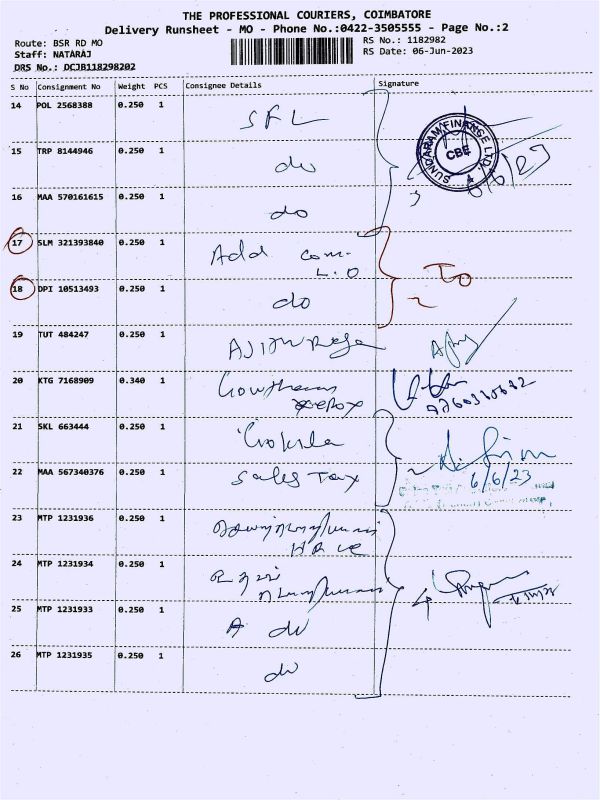 THE PROFESSIONAL COURIERS, COIMBATORE
Delivery Runsheet - MO - Phone No.:0422-3505555 - Page No.:2
Route: BSR RD MO
RS No.: 1182982
Staff: NATARAJ
RS Date: 06-Jun-2023
DRS No.: DCJB118298202
S No Consignment No Weight PCS Consignee Details Signature
14 POL 2568388 0.250 1 SFL
SUNDARAM FINANCE LTD. CBE
15 TRP 8144946 0.250 1 do
16 MAA 570161615 0.250 1 do
17 SLM 321393840 0.250 1 Add com-
L.O
To
18 DPI 10513493 0.250 1 do
19 TUT 484247 0.250 1
20 KTG 7168909 0.340 1
21 SKL 663444 0.250 1 Gokula
22 MAA 567340376 0.250 1 Sales Tax
6/6/23
23 MTP 1231936 0.250 1
24 MTP 1231934 0.250 1
25 MTP 1231933 0.250 1 A do
26 MTP 1231935 0.250 1 do